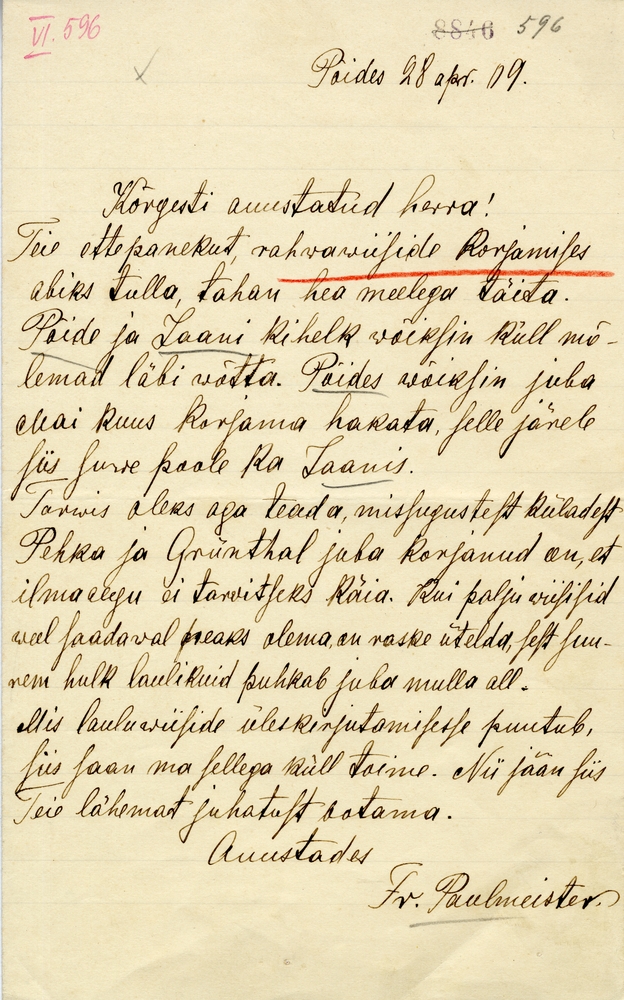 VI. 596
8846 596
Pöides 28 apr. 09.
Kõrgesti auustatud herra!
Teie ettepanekut, rahwawiiside korjamises
abiks tulla, tahan hea meelega täita.
Pöide ja Jaani kihelk wõiksin küll mõ-
lemad läbi wõtta. Pöides wõiksin juba
Mai kuus korjama hakata, selle järele
siis suwe poole ka Jaanis.
Tarwis oleks aga teada, missugustest küladest
Pehka ja Grünthal juba korjanud on, et
ilmaaegu ei tarvitseks käia. Kui palju wiisisid
weel saadawal peaks olema, on raske ütelda, sest suu-
rem hulk laulikuid puhkab juba mulla all.
Mis lauluwiiside üleskirjutamisesse puutub,
siis saan ma sellega küll toime. Nii jään siis
Teie lähemat juhatust ootama.
Auustades
Fr. Paulmeister.